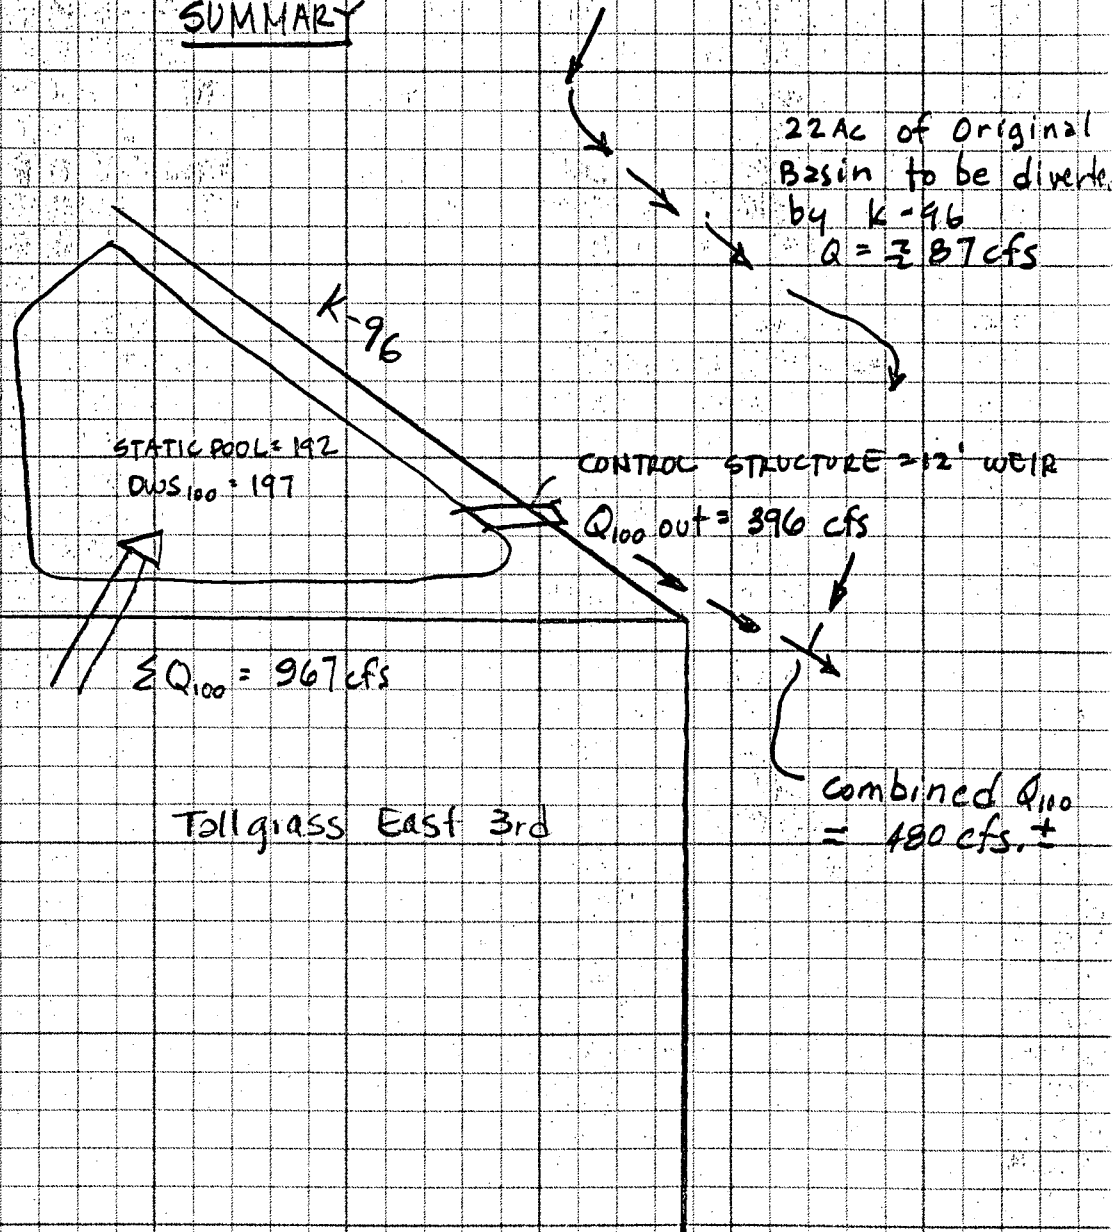 SUMMARY
22Ac of Original
Basin to be diverte
by K-96
Q = ± 87 cfs
K-96
STATIC POOL = 192
DWS100 = 197
CONTROL STRUCTURE = 12' WEIR
Q100 out = 396 cfs
ΣQ100 = 967 cfs
Combined Q100
= 480 cfs. ±
Tallgrass East 3rd